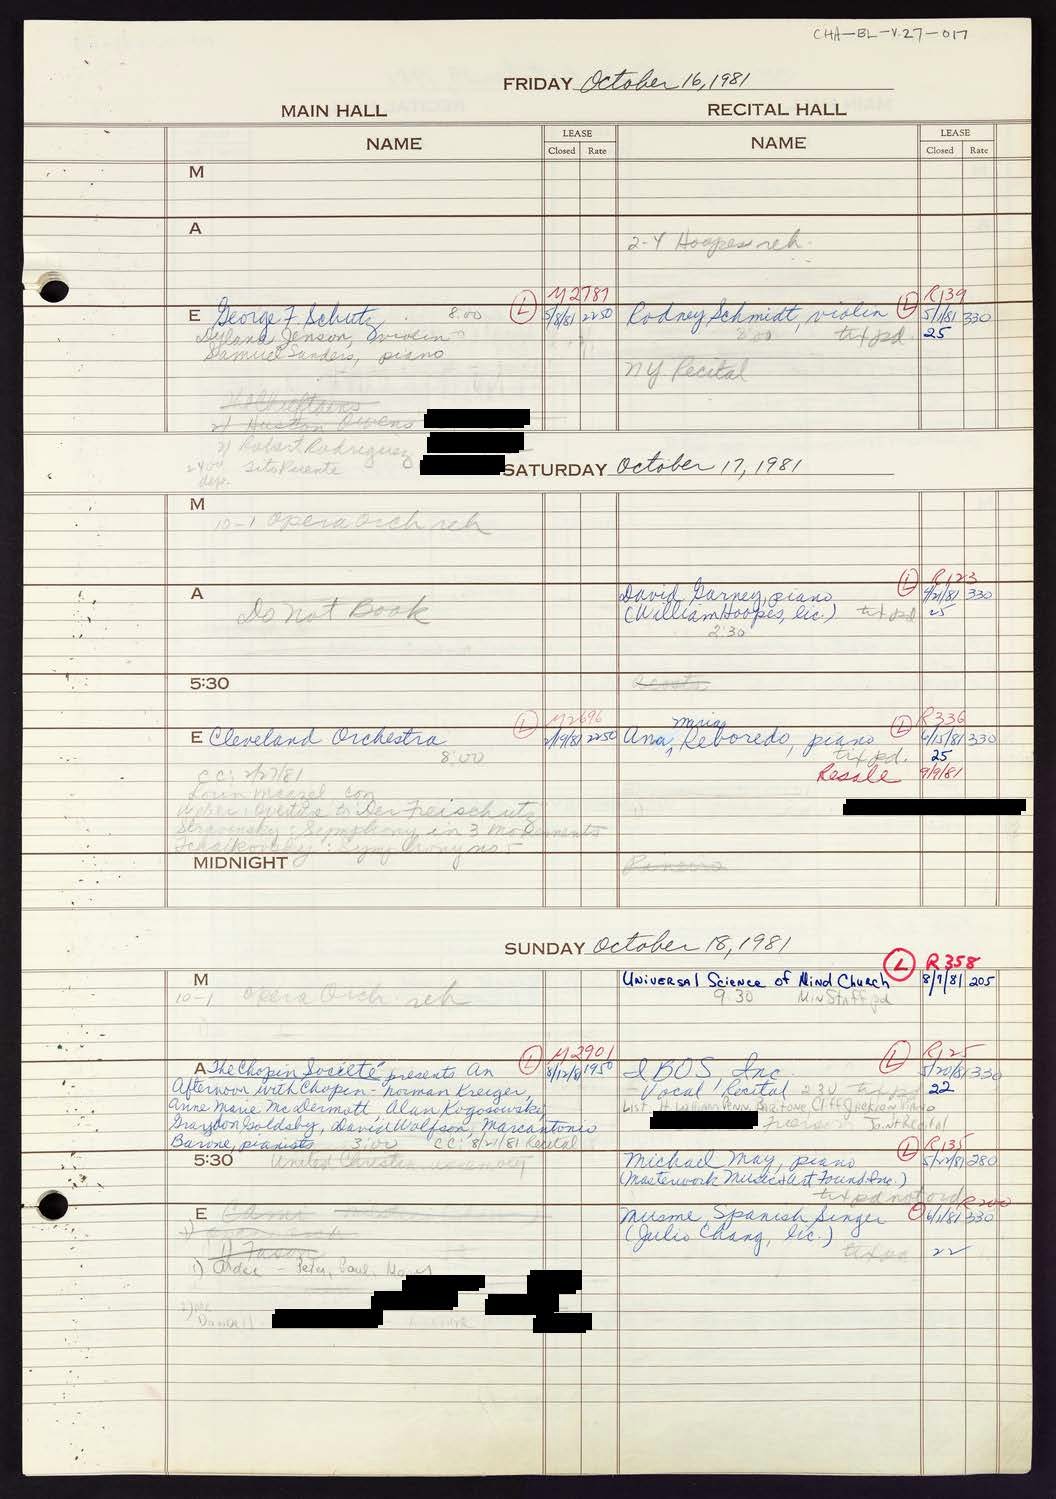 CHA-BL-V.27-017
FRIDAY October 16, 1981
MAIN HALL
RECITAL HALL
NAME
LEASE
Closed Rate
NAME
LEASE
Closed Rate
M
A
2-4 Hoopes reh.
M2787
R139
E George F. Schutz 8:00 L 5/8/81 2250
Rodney Schmidt, violin L 5/1/81 330
Dylana Jenson, violin
8:00 tix pd. 25
Samuel Sanders, piano
NY Recital
The Chieftains
2) Huston Owens
2) Robert Rodriguez
Sito Parente
SATURDAY October 17, 1981
M
10-1 opera orch reh
A
Do Not Book
R123
David Garney, piano L 4/21/81 330
(William Hoopes, lic.) tix pd 25
2:30
5:30
M2696
R336
E Cleveland Orchestra L 2/19/81 2250
8:00
Ana Maria Reboredo, piano L 6/15/81 330
tix pd. 25
Resale 9/9/81
CC: 2/27/81
Lorin Maazel, con
Weber: Overture to Der Freischutz
Stravinsky: Symphony in 3 movements
Tchaikovsky: Symphony no 5
MIDNIGHT
SUNDAY October 18, 1981
M
10-1 opera Orch. reh
R358
Universal Science of Mind Church L 8/7/81 205
9:30 Min Staff pd
M2901
A The Chopin Société presents An L 8/12/81 1950
Afternoon with Chopin - Norman Kreiger,
Anne Marie McDermott, Alan Kogosowski,
Graydon Goldsby, David Wolfson, Marcantonio
Barone, pianists 3:00 CC: 8/27/81 Recital
R125
IBOS, Inc. L 5/20/81 330
Vocal Recital 2:30 tix pd 22
List: H William Penn, Baritone, Cliff Jackson Piano
Joint Recital
5:30
United Christian
R135
Michael May, piano L 5/22/81 280
(Masterwork Music & Art Found. Inc.)
tix pd not ord
R200
E
Musme, Spanish Singer 6/1/81 330
(Julio Chang, lic.)
tix pd 22
1) Ardee - Peter, Paul, Mary